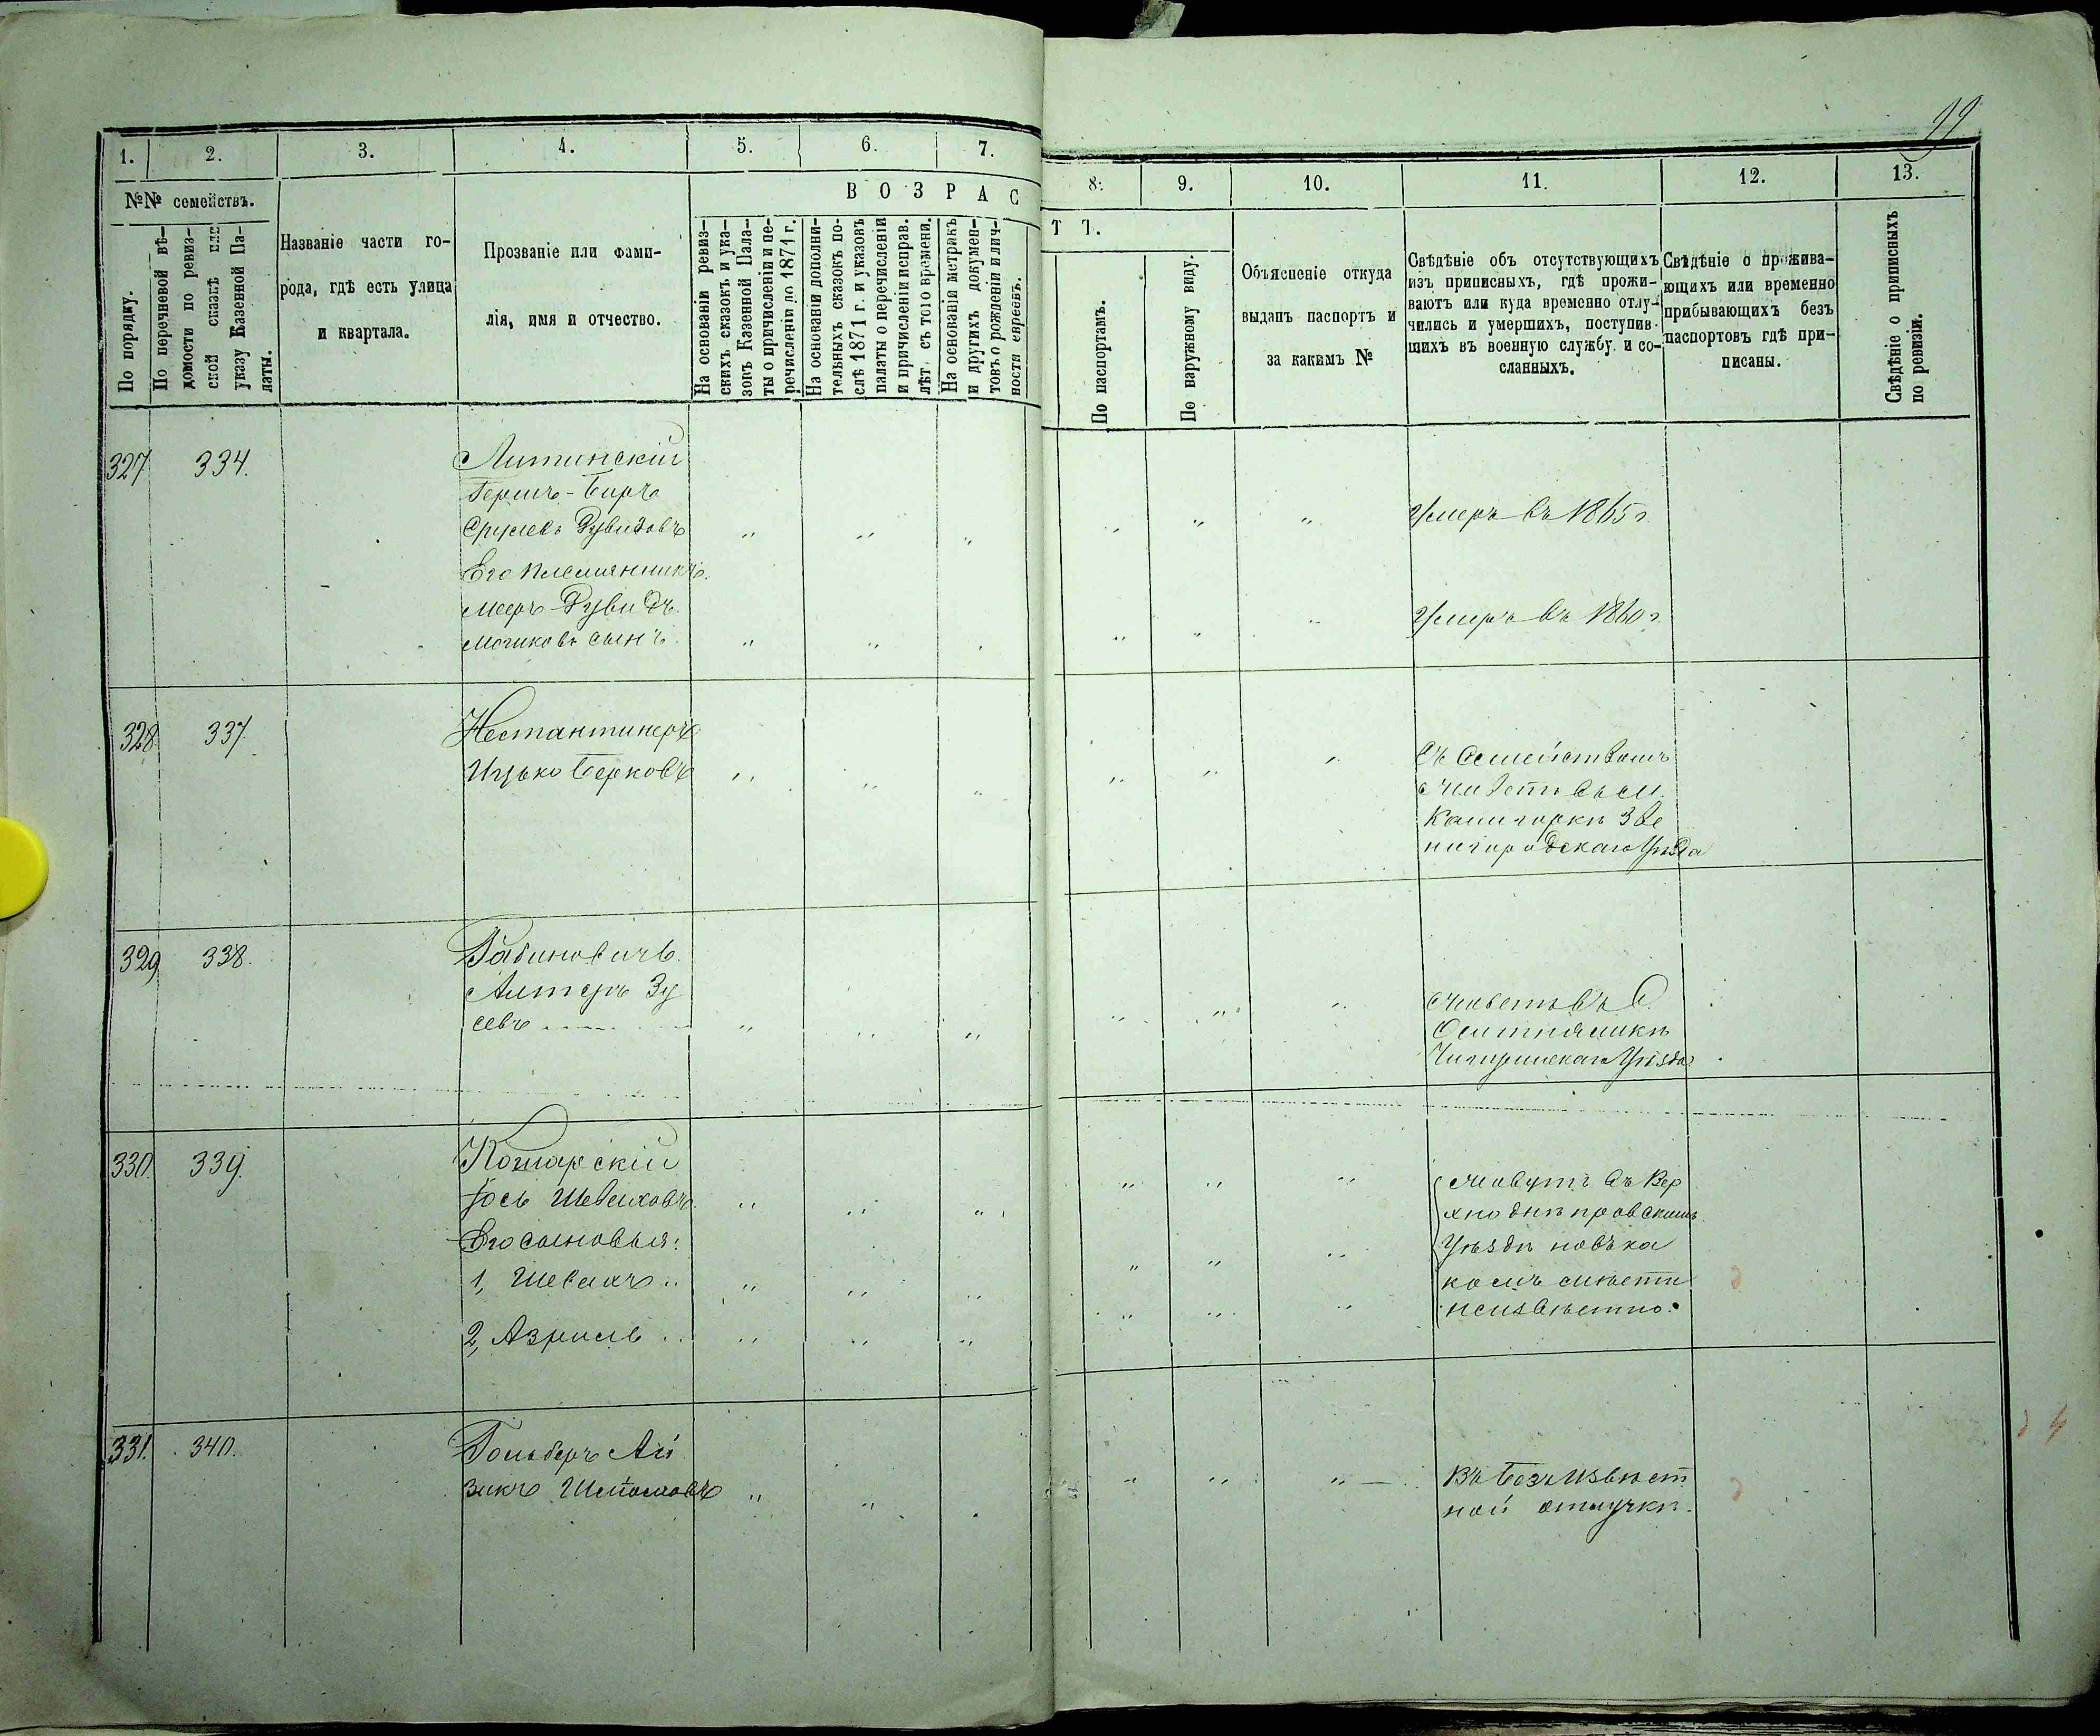 99
1. 2. 3. 4. 5. 6. 7. 8. 9. 10. 11. 12. 13.
№№ семействъ.
По порядку.
По перечневой вѣ-
домости по ревиз-
ской сказкѣ или
указу Казенной Па-
латы.
Названіе части го-
рода, гдѣ есть улица
и квартала.
Прозваніе или фами-
лія, имя и отчество.
ВОЗРАСТЪ.
На основаніи ревиз-
скихъ сказокъ и ука-
зокъ Казенной Пала-
ты о причисленіи и пе-
речисленіи до 1871 г.
На основаніи дополни-
тельныхъ сказокъ по-
слѣ 1871 г. и указовъ
палаты о перечисленіи
и причисленіи исправ.
лѣт. съ того времени.
На основаніи метрикъ
и другихъ докумен-
товъ о рожденіи и лич-
ности евреевъ.
По паспортамъ.
По наружному виду.
Объясненіе откуда
выданъ паспортъ и
за какимъ №
Свѣдѣніе объ отсутствующихъ
изъ приписныхъ, гдѣ прожи-
ваютъ или куда временно отлу-
чились и умершихъ, поступив-
шихъ въ военную службу и со-
сланныхъ.
Свѣдѣніе о прожива-
ющихъ или временно
прибывающихъ безъ
паспортовъ гдѣ при-
писаны.
Свѣдѣніе о приписныхъ
по ревизіи.
327 334. Литинскій
Гершъ-Беръ
Срулевъ Дувидовъ Умеръ въ 1865 г.
Его племянникъ
Мееръ-Дувидъ Умеръ въ 1860 г.
Мошковъ сынъ.
328 337. Нестантинеръ
Ицько Берковъ Съ семействомъ
живетъ въ м.
Звенигородскаго уѣзда
329 338. Рабиновичъ.
Алтеръ Зу
севъ живетъ въ С.
Оситняжкѣ
Чигиринскаго уѣзда
330. 339. Комарскій
Іось Шевелиховъ живутъ въ Вер
Его сыновья: хнеднѣпровскомъ
уѣздѣ но въ ка
1, Шевелихъ комъ мѣстѣ
2, Азріель неизвѣстно.
331. 340. Гольберъ Ай
зикъ Въ безъизвѣст
ной отлучкѣ.